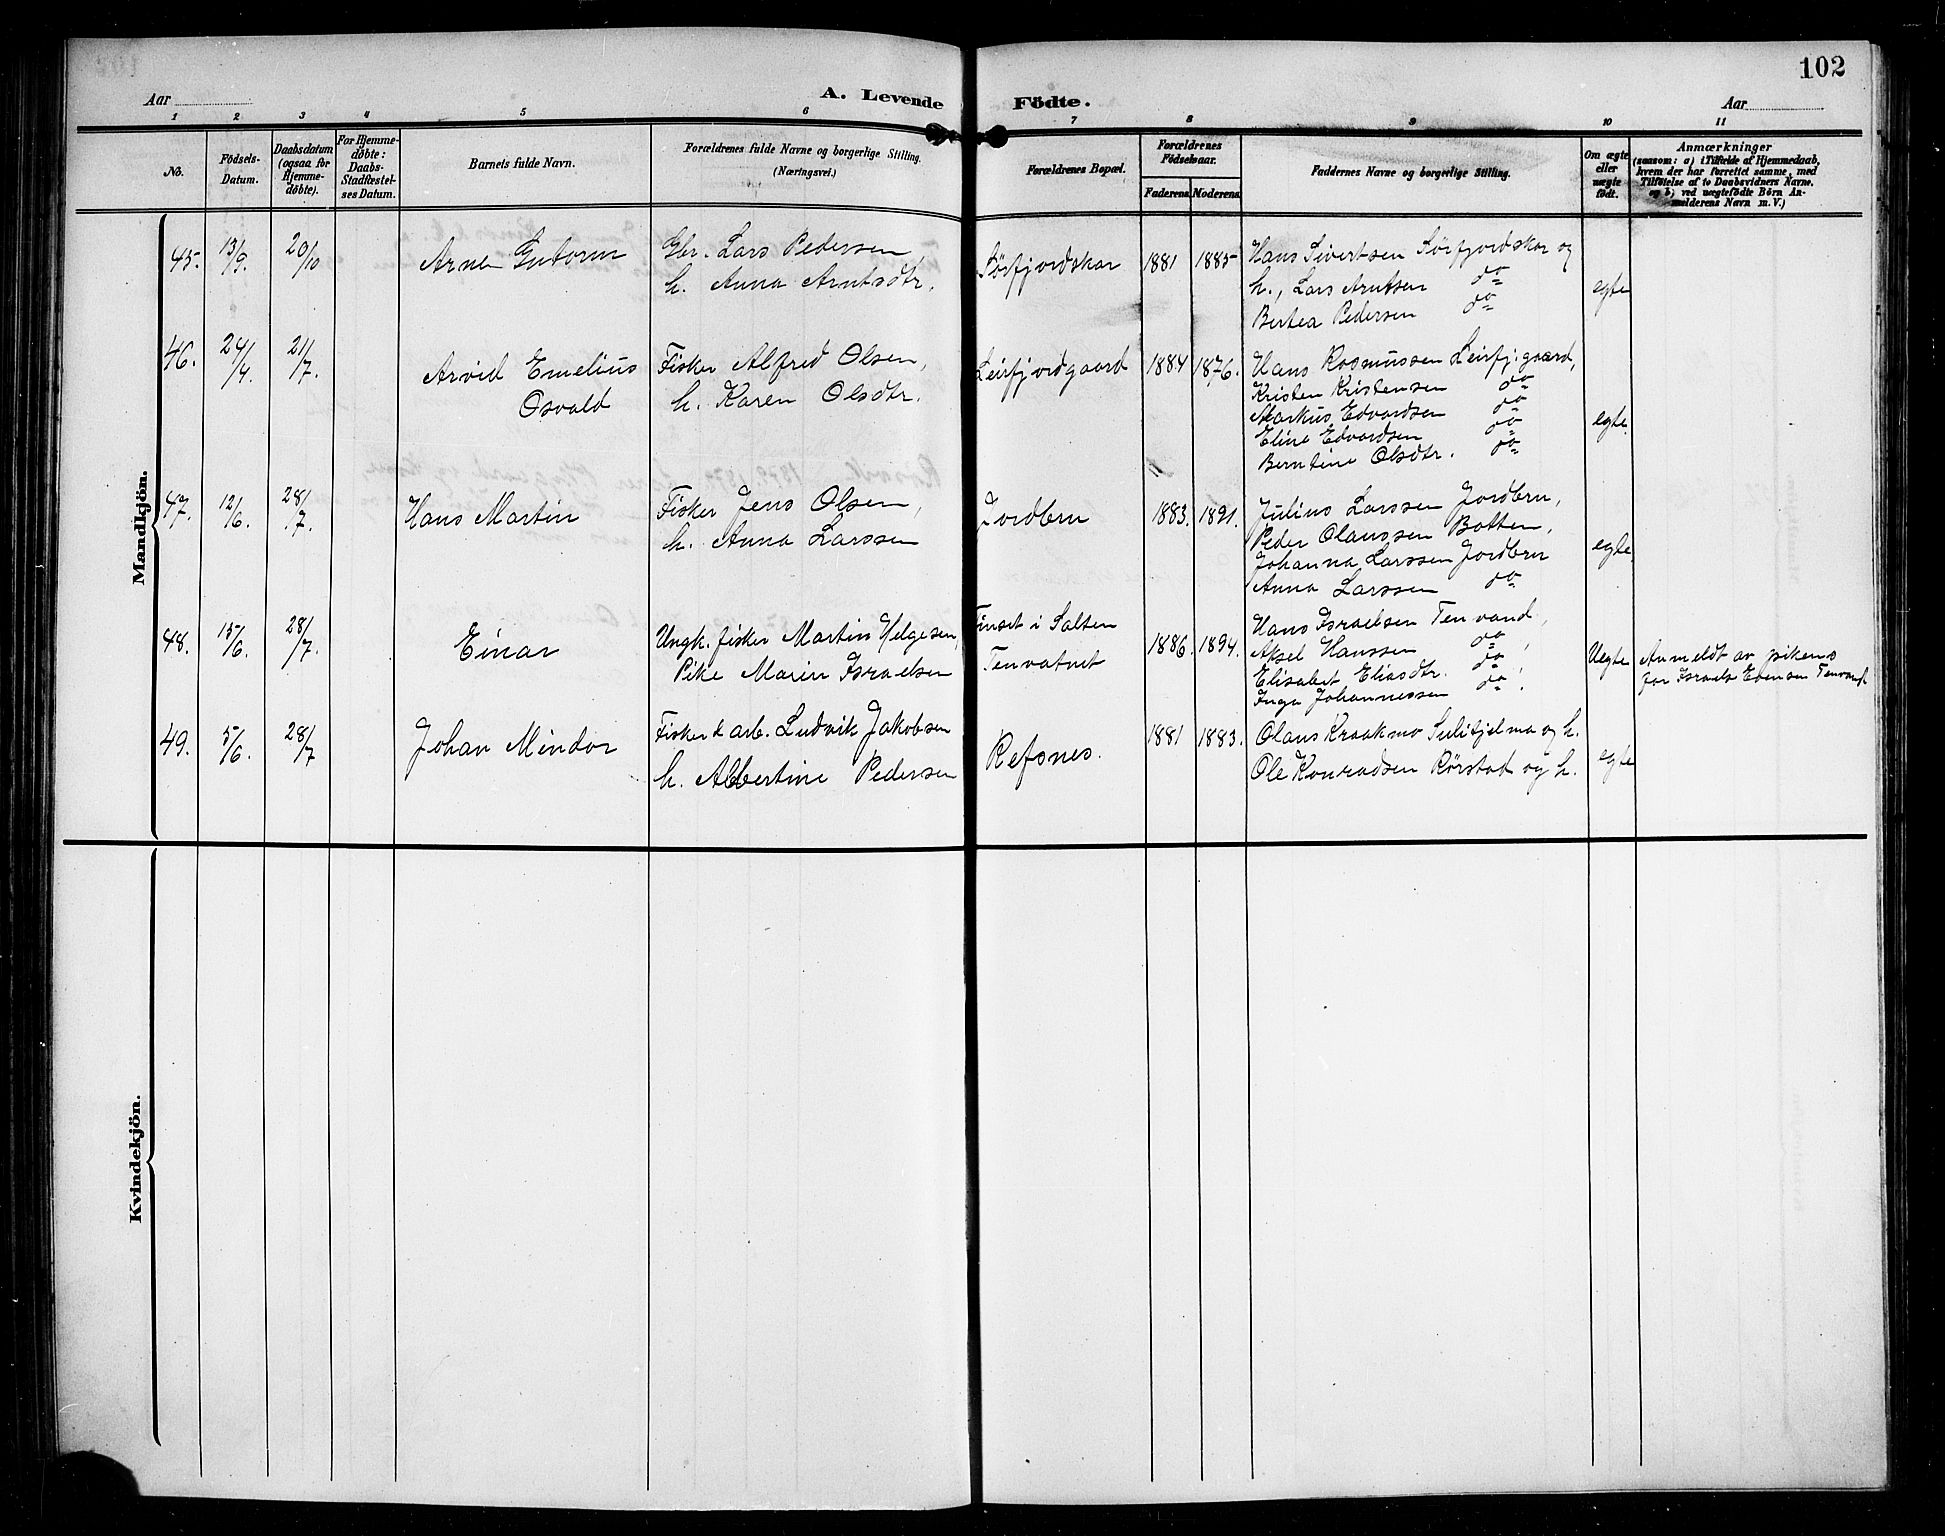 102
Aar
A. Levende Födte.
Aar
1 2 3 4 5 6 7 8 9 10 11
No.
Födsels-
Datum.
Daabsdatum
(ogsaa for
Hjemme-
döbte).
For Hjemme-
döbte:
Daabs-
Stadfæstel-
ses Datum.
Barnets fulde Navn.
Forældrenes fulde Navne og borgerlige Stilling.
(Næringsvei.)
Forældrenes Bopæl.
Forældrenes
Födselsaar.
Faderens. Moderens.
Faddernes Navne og borgerlige Stilling.
Om ægte
eller
uægte
født.
Anmærkninger
(saasom: a) i Tilfælde af Hjemmedaab,
hvem der har forrettet samme, med
Tilføielse af to Daabsvidners Navne,
og b) ved uægtefödte Börn An-
melderens Navn m. V.)
Mandkjön.
45. 13/9. 20/10 Arne Gutorm
Gbr. Lars Pedersen
h. Anna Arntsdtr.
Sörfjordskar 1881 1885
Hans Sivertsen Sörfjordskar og
h., Lars Arntsen do
Bertea Pedersen do
egte
46. 24/4. 21/7. Arvid Emelius
Osvald
Fisker Alfred Olsen,
h. Karen Olsdtr.
Leirfjordgaard 1884 1876.
Hans Rasmussen Leirfj.gaard,
Kristen Kristensen do
Markus Edvardsen do
Eline Edvardsen do
Berntine Olsdtr. do
egte.
47. 12/6. 28/7. Hans Martin
Fisker Jens Olsen,
h. Anna Larssen
Jordbru 1883. 1891.
Julius Larssen Jordbru,
Peder Olaussen Botten,
Johanna Larssen Jordbru
Anna Larssen do
egte.
48. 15/6. 28/7. Einar
Ungk. fisker Martin Helgesen,
Pike Marin Israelsen
Finset i Salten
Tenvatnet
1886. 1894.
Hans Israelsen Tenvand,
Aksel Hanssen do,
Elisabet Eliasdtr. do,
Inga Johannessen do.
Uegte
Anmeldt av pikens
far Israels Evensen Tenvand
49. 5/6. 28/7 Johan Mindor
Fisker & arb. Ludvik Jakobsen
h. Albertine Pedersen
Refsnes.
1881 1883.
Olaus Kraakmo Sulitjelma og h.
Ole Konradsen Rørstad og h.
egte
Kvindekjön.